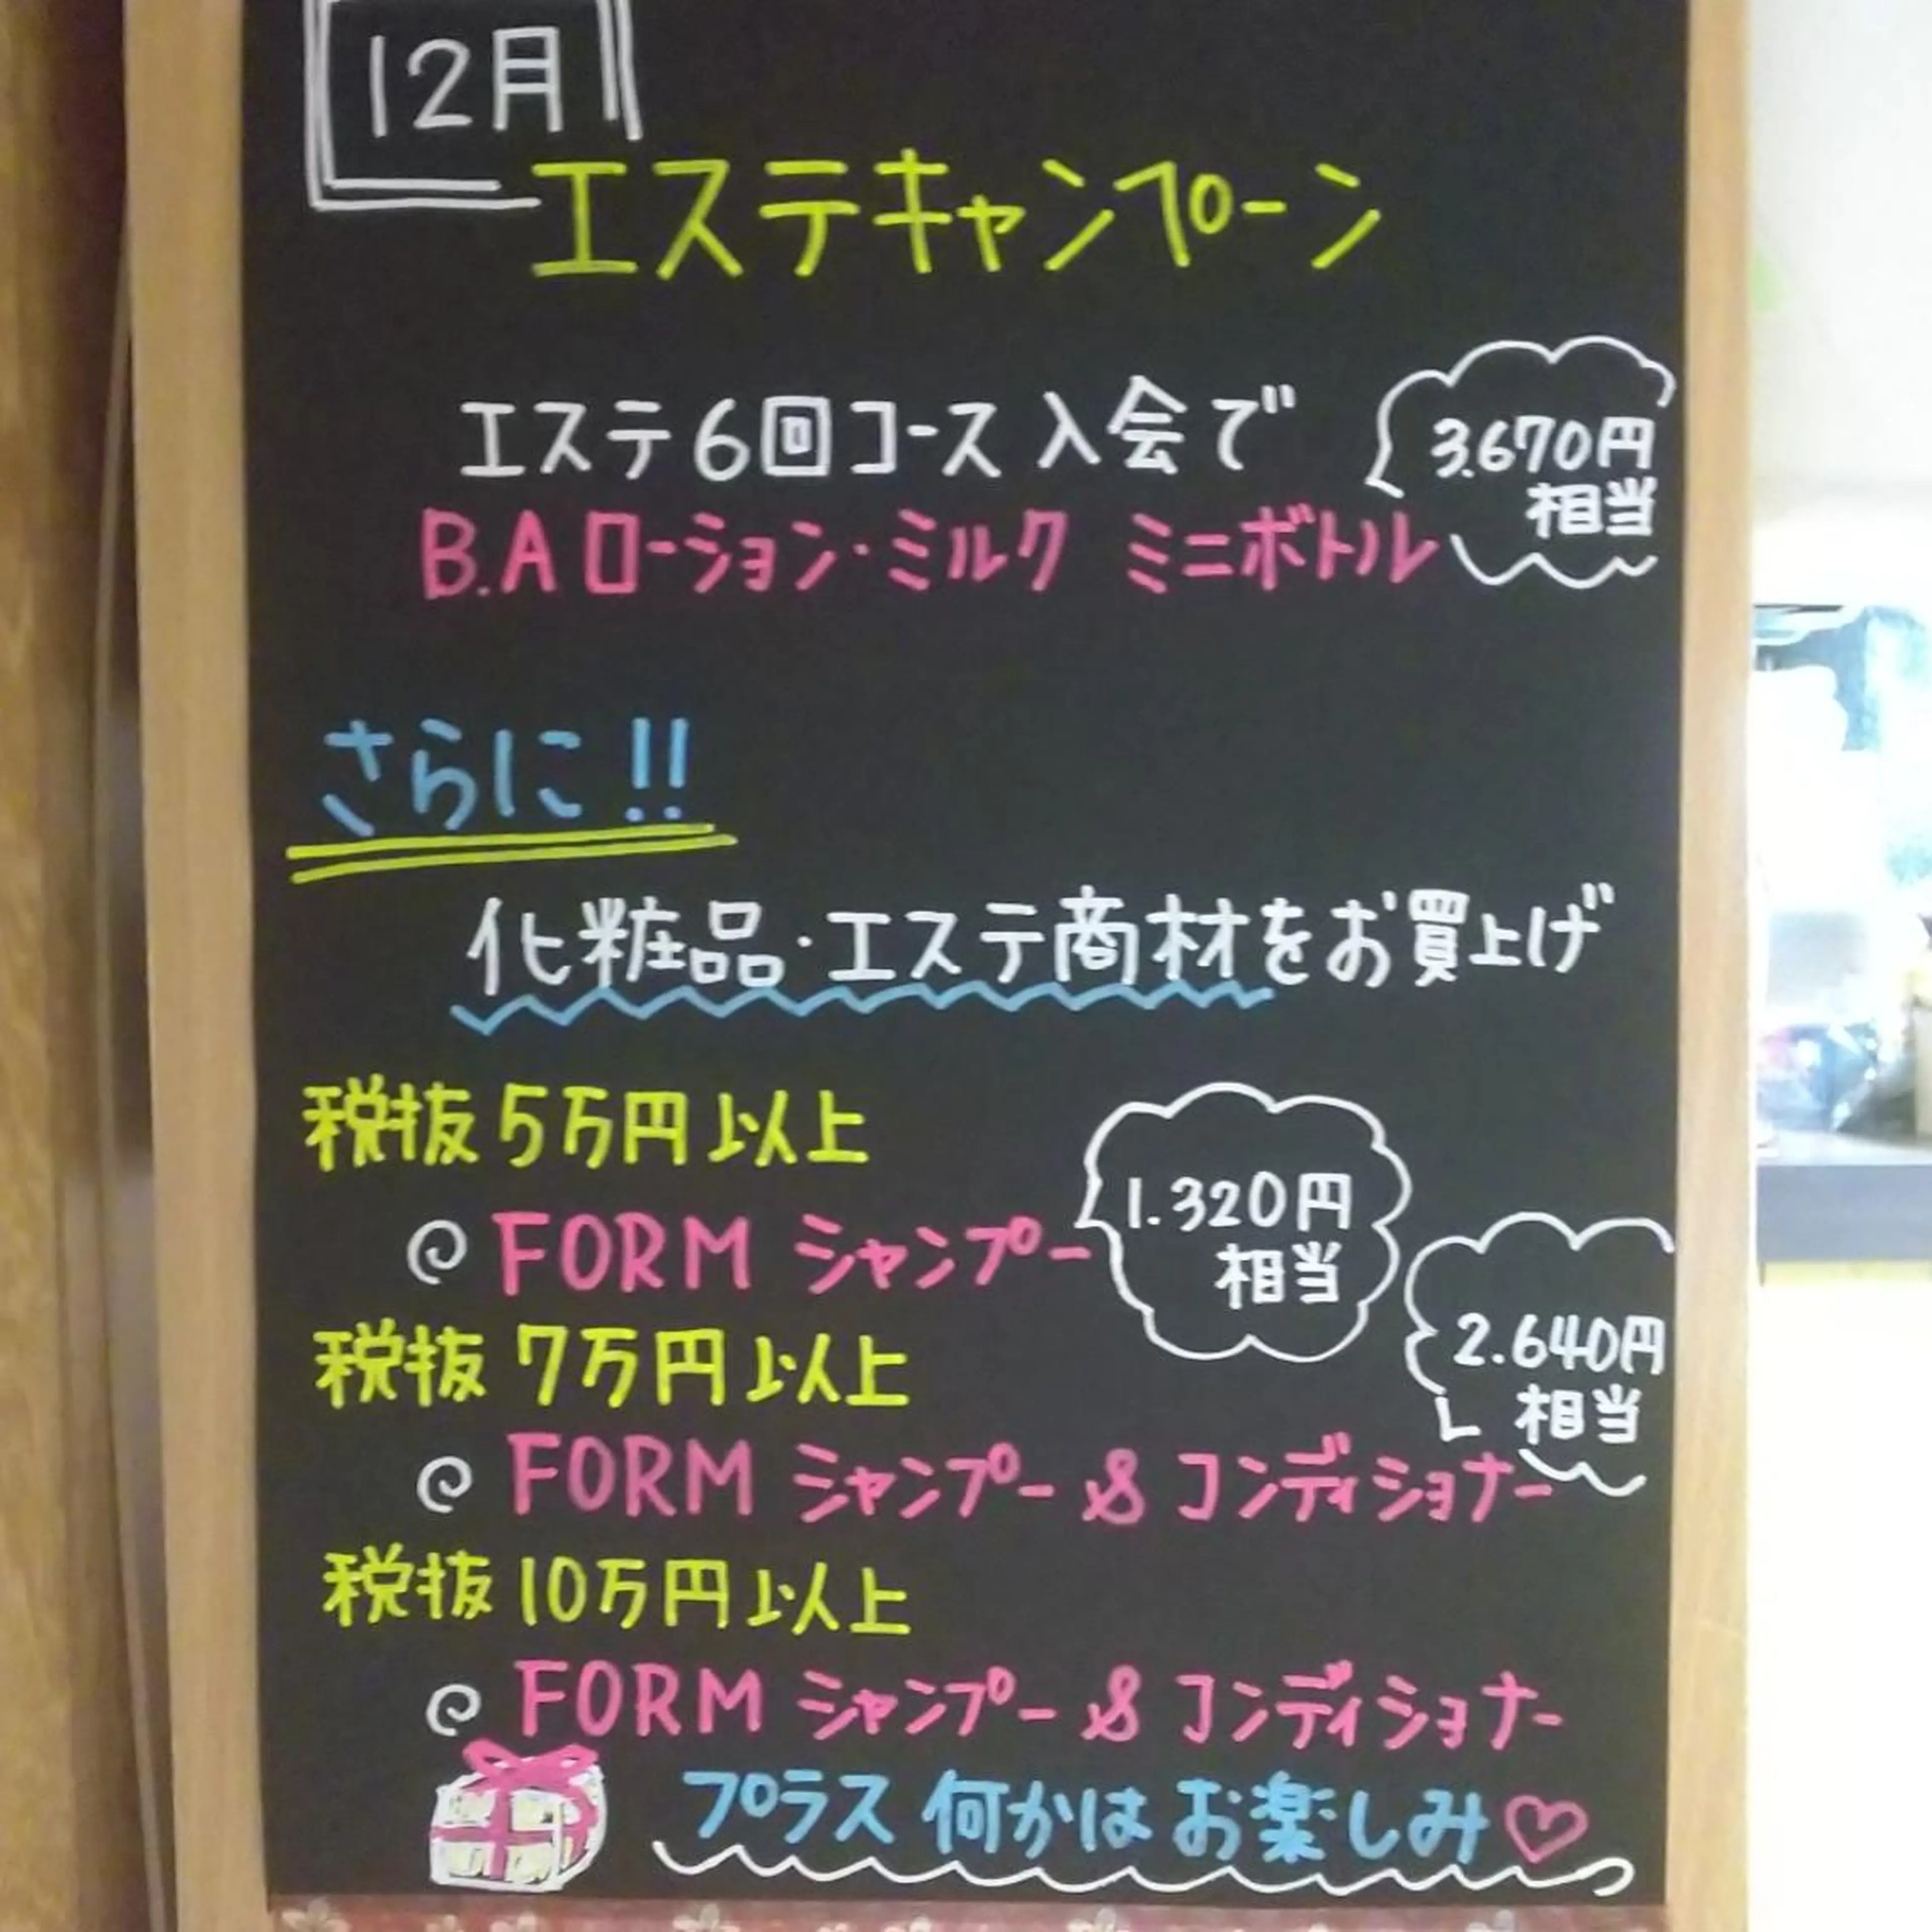 12月
エステキャンプーン
エステ6回コース入会で
3.670円
相当
B.Aローション・ミルク ミニボトル
さらに!!
化粧品・エステ商材をお買上げ
税抜5万円以上
FORM シャンプー
1.320円
相当
税抜 7万円以上
2.640円
相当
FORM シャンプー & コンディショナー
税抜 10万円以上
FORM シャンプー & コンディショナー
プラス 何かは お楽しみ♡